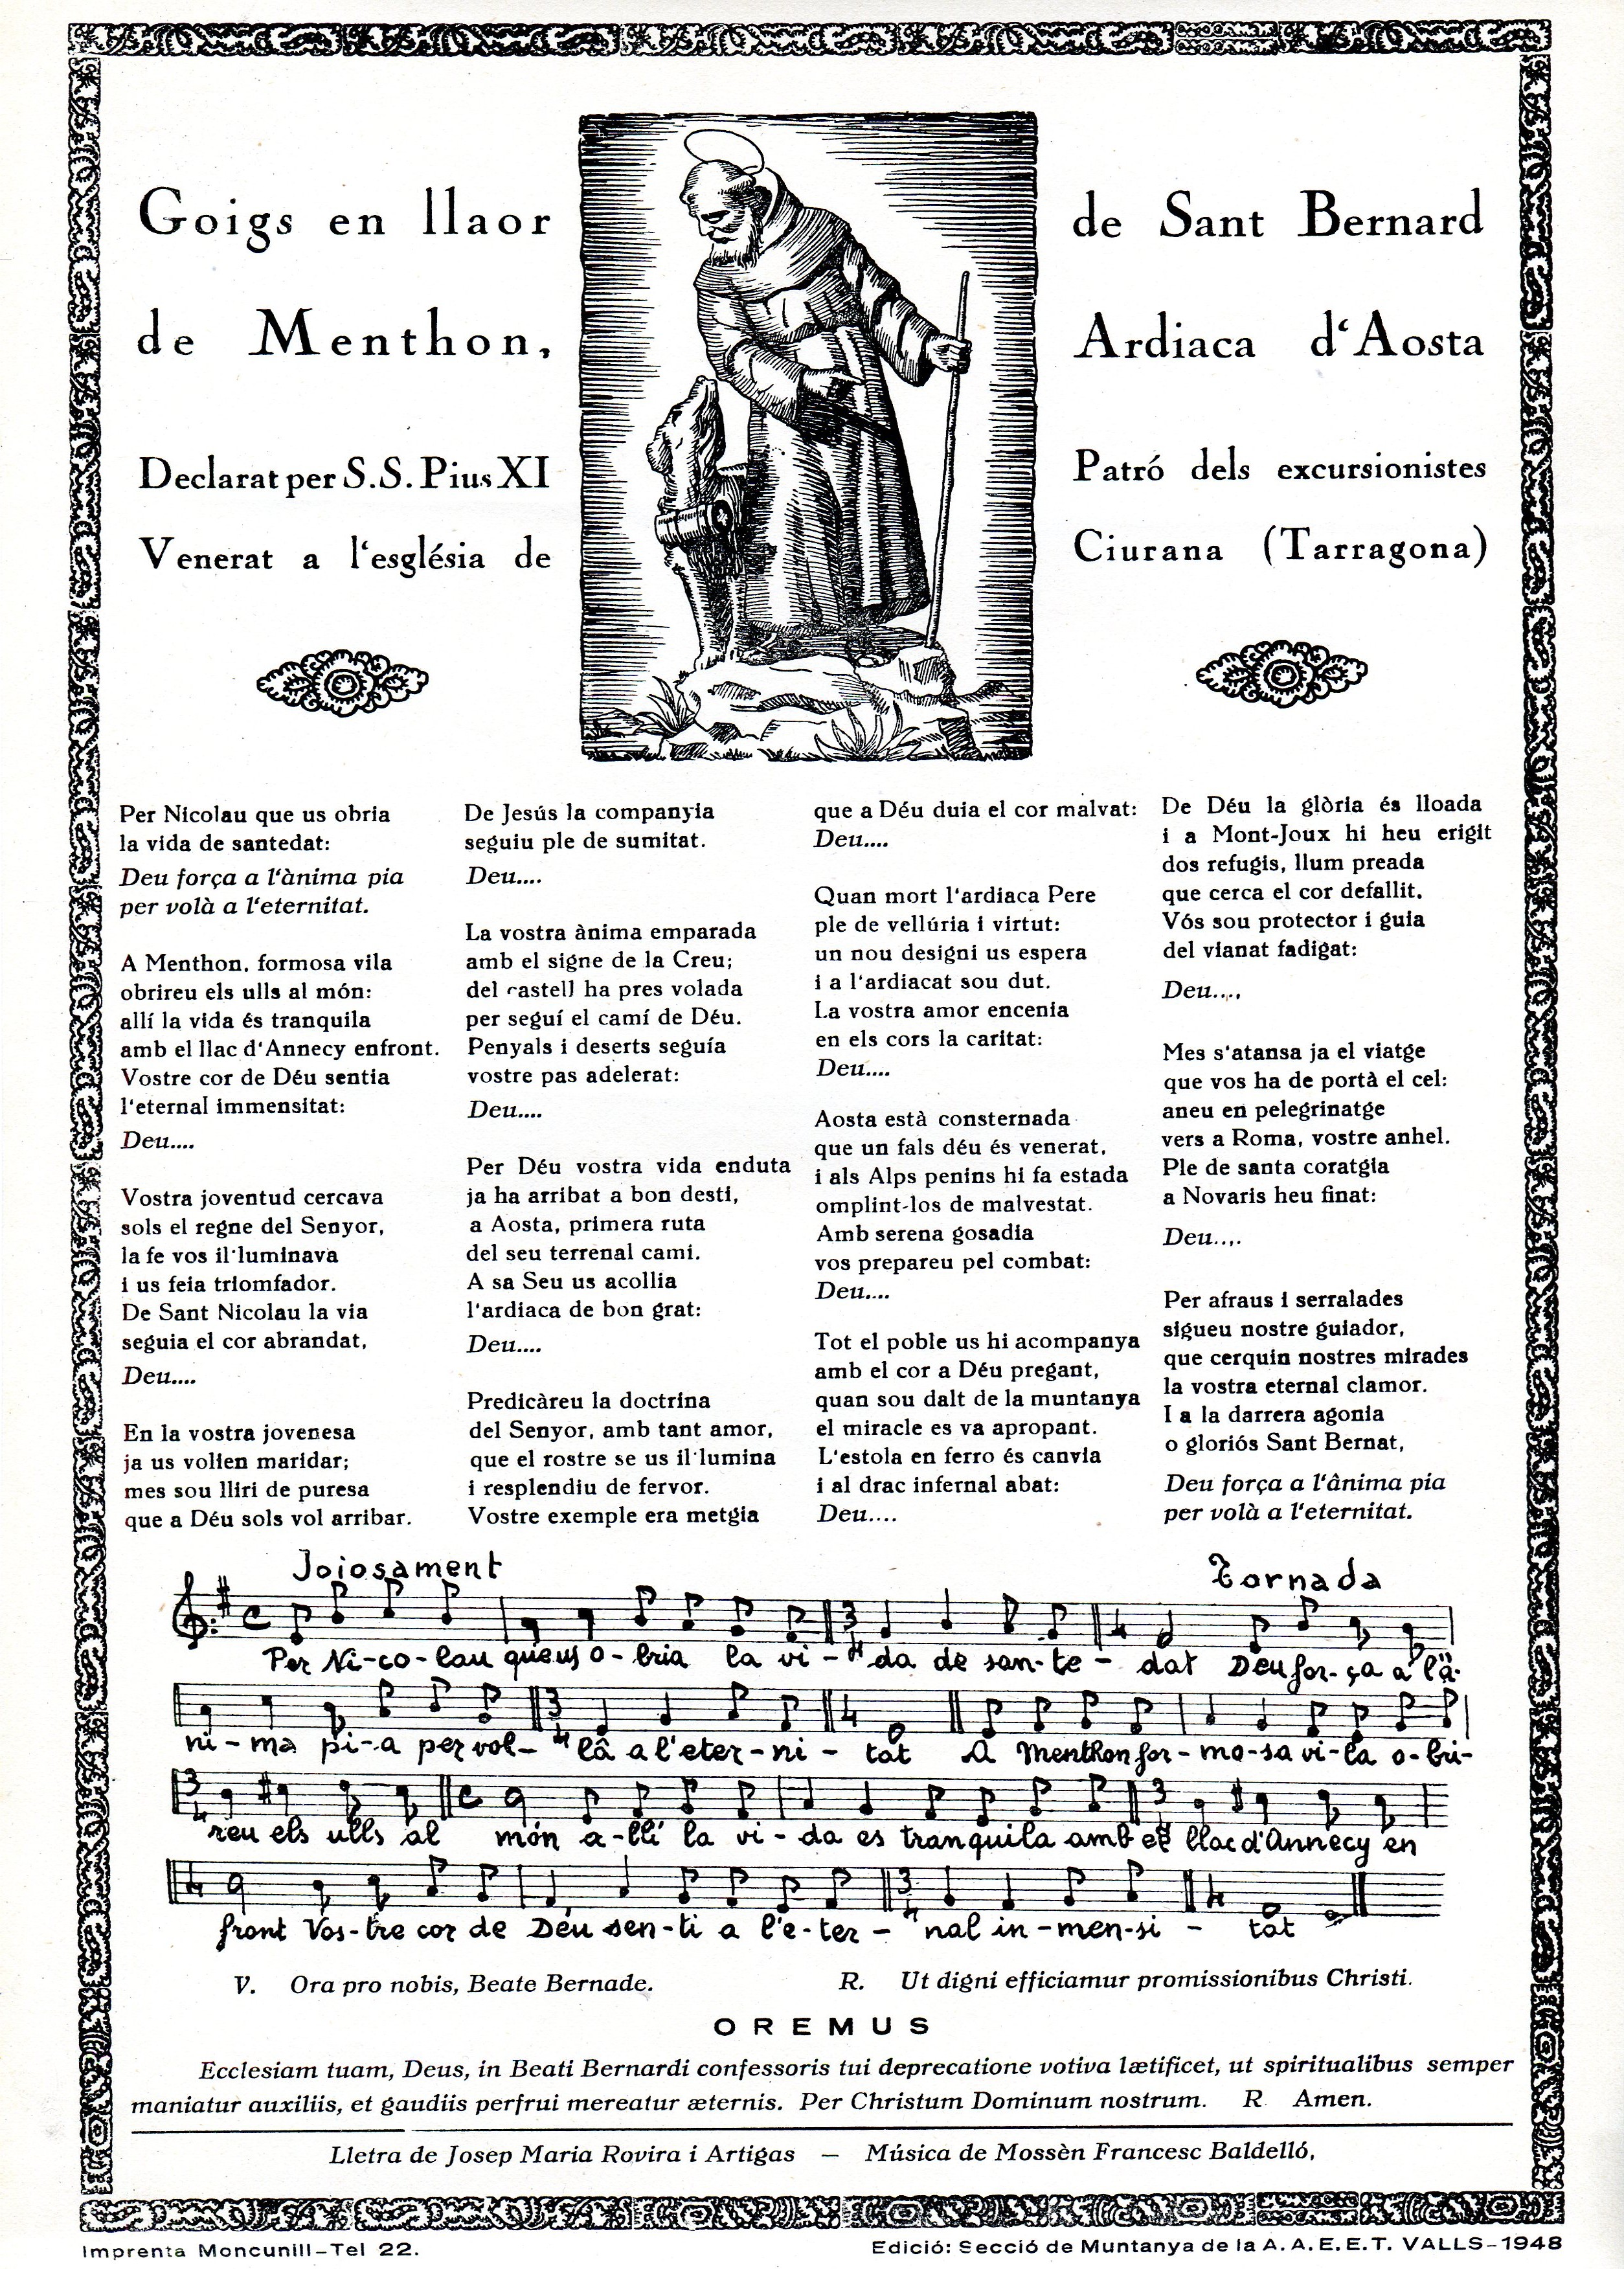 Goigs en llaor de Sant Bernard
de Menthon, Ardiaca d‘Aosta
Declarat per S.S. Pius XI Patró dels excursionistes
Venerat a l‘església de Ciurana (Tarragona)
Per Nicolau que us obria
la vida de santedat:
Deu força a l‘ànima pia
per volà a l‘eternitat.
A Menthon. formosa vila
obrireu els ulls al món:
allí la vida és tranquila
amb el llac d‘Annecy enfront.
Vostre cor de Déu sentia
l‘eternal immensitat:
Deu....
Vostra joventud cercava
sols el regne del Senyor,
la fe vos il·luminava
i us feia triomfador.
De Sant Nicolau la via
seguia el cor abrandat,
Deu....
En la vostra jovenesa
ja us volien maridar;
mes sou lliri de puresa
que a Déu sols vol arribar.
De Jesús la companyia
seguiu ple de sumitat.
Deu....
La vostra ànima emparada
amb el signe de la Creu;
del castell ha pres volada
per seguí el camí de Déu.
Penyals i deserts seguía
vostre pas adelerat:
Deu....
Per Déu vostra vida enduta
ja ha arribat a bon desti,
a Aosta, primera ruta
del seu terrenal cami.
A sa Seu us acollia
l‘ardiaca de bon grat:
Deu....
Predicàreu la doctrina
del Senyor, amb tant amor,
que el rostre se us il·lumina
i resplendiu de fervor.
Vostre exemple era metgia
que a Déu duia el cor malvat:
Deu....
Quan mort l‘ardiaca Pere
ple de vellúria i virtut:
un nou designi us espera
i a l‘ardiacat sou dut.
La vostra amor encenia
en els cors la caritat:
Deu....
Aosta està consternada
que un fals déu és venerat,
i als Alps penins hi fa estada
omplint-los de malvestat.
Amb serena gosadia
vos prepareu pel combat:
Deu....
Tot el poble us hi acompanya
amb el cor a Déu pregant,
quan sou dalt de la muntanya
el miracle es va apropant.
L‘estola en ferro és canvia
i al drac infernal abat:
Deu....
De Déu la glòria és lloada
i a Mont-Joux hi heu erigit
dos refugis, llum preada
que cerca el cor defallit.
Vós sou protector i guia
del vianat fadigat:
Deu...,
Mes s‘atansa ja el viatge
que vos ha de portà el cel:
aneu en pelegrinatge
vers a Roma, vostre anhel.
Ple de santa coratgia
a Novaris heu finat:
Deu..,.
Per afraus i serralades
sigueu nostre guiador,
que cerquin nostres mirades
la vostra eternal clamor.
I a la darrera agonia
o gloriós Sant Bernat,
Deu força a l‘ânima pia
per volà a l‘eternitat.
Joiosament Tornada
Per Ni-co-lau que us o-bria la vi-da de san-te-dat Deu for-ça a l'à-
ni-ma pi-a per vol-là a l'eter-ni-tat A Menthon for-mo-sa vi-la o-bri-
reu els ulls al món a-llí la vi-da es tranquila amb el llac d'Annecy en
front Vos-tre cor de Déu sen-ti a l'e-ter-nal in-men-si-tat
V. Ora pro nobis, Beate Bernade. R. Ut digni efficiamur promissionibus Christi.
OREMUS
Ecclesiam tuam, Deus, in Beati Bernardi confessoris tui deprecatione votiva lætificet, ut spiritualibus semper
maniatur auxiliis, et gaudiis perfrui mereatur æternis. Per Christum Dominum nostrum. R. Amen.
Lletra de Josep Maria Rovira i Artigas — Música de Mossèn Francesc Baldelló,
Imprenta Moncunill-Tel 22. Edició: Secció de Muntanya de la A. A. E. E. T. VALLS-1948